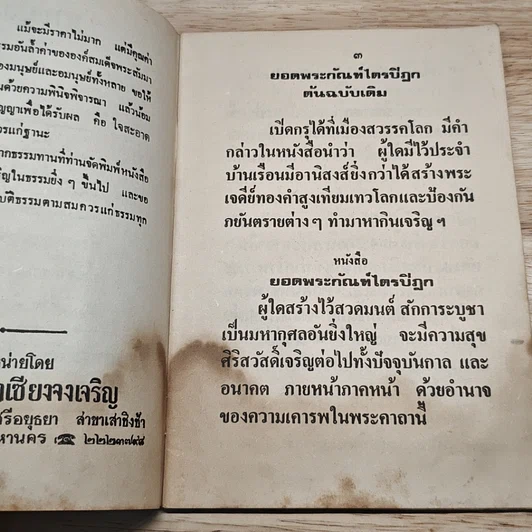 แม้จะมีราคาไม่มาก แต่มีคุณค่า
รรมอันล้ำค่าขององค์สมเด็จพระสัมมา
องมนุษย์และอมนุษย์ทั้งหลาย ขอให้
นด้วยความพินิจพิจารณา แล้วน้อม
ญญาเพื่อได้รับผล คือ ใจสะอาด
วรแก่ฐานะ
ากธรรมทานที่ท่านจัดพิมพ์หนังสือ
ริญในธรรมยิ่ง ๆ ขึ้นไป และขอ
บัติธรรมตามสมควรแก่ธรรมทุก
น่ายโดย
าเซียงจงเจริญ
ศรีอยุธยา สาขาเสาชิงช้า
หานคร ☎ ๒๒๒๓๗๙๘
๓
ยอดพระกัณฑ์ไตรปิฎก
ต้นฉบับเดิม
เปิดกรุได้ที่เมืองสวรรคโลก มีคำ
กล่าวในหนังสือนำว่า ผู้ใดมีไว้ประจำ
บ้านเรือนมีอานิสงส์ยิ่งกว่าได้สร้างพระ
เจดีย์ทองคำสูงเทียมเทวโลกและป้องกัน
ภยันตรายต่าง ๆ ทำมาหากินเจริญ ฯ
หนังสือ
ยอดพระกัณฑ์ไตรปิฎก
ผู้ใดสร้างไว้สวดมนต์ สักการะบูชา
เป็นมหากุศลอันยิ่งใหญ่ จะมีความสุข
ศิริสวัสดิ์เจริญต่อไปทั้งปัจจุบันกาล และ
อนาคต ภายหน้าภาคหน้า ด้วยอำนาจ
ของความเคารพในพระคาถานี้